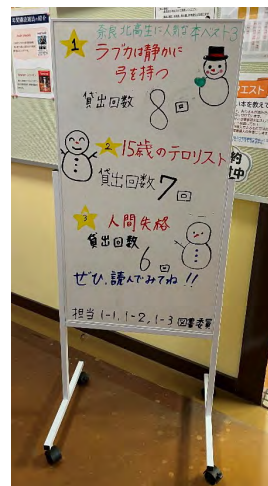 奈良北高生に人気な本ベスト3
1
ラブカは静かに
弓を持つ
貸出回数 8回
2 15歳のテロリスト
貸出回数 7回
3 人間失格
貸出回数 6回
ぜひ、読んでみてね!!
担当 1-1, 1-2, 1-3 図書委員